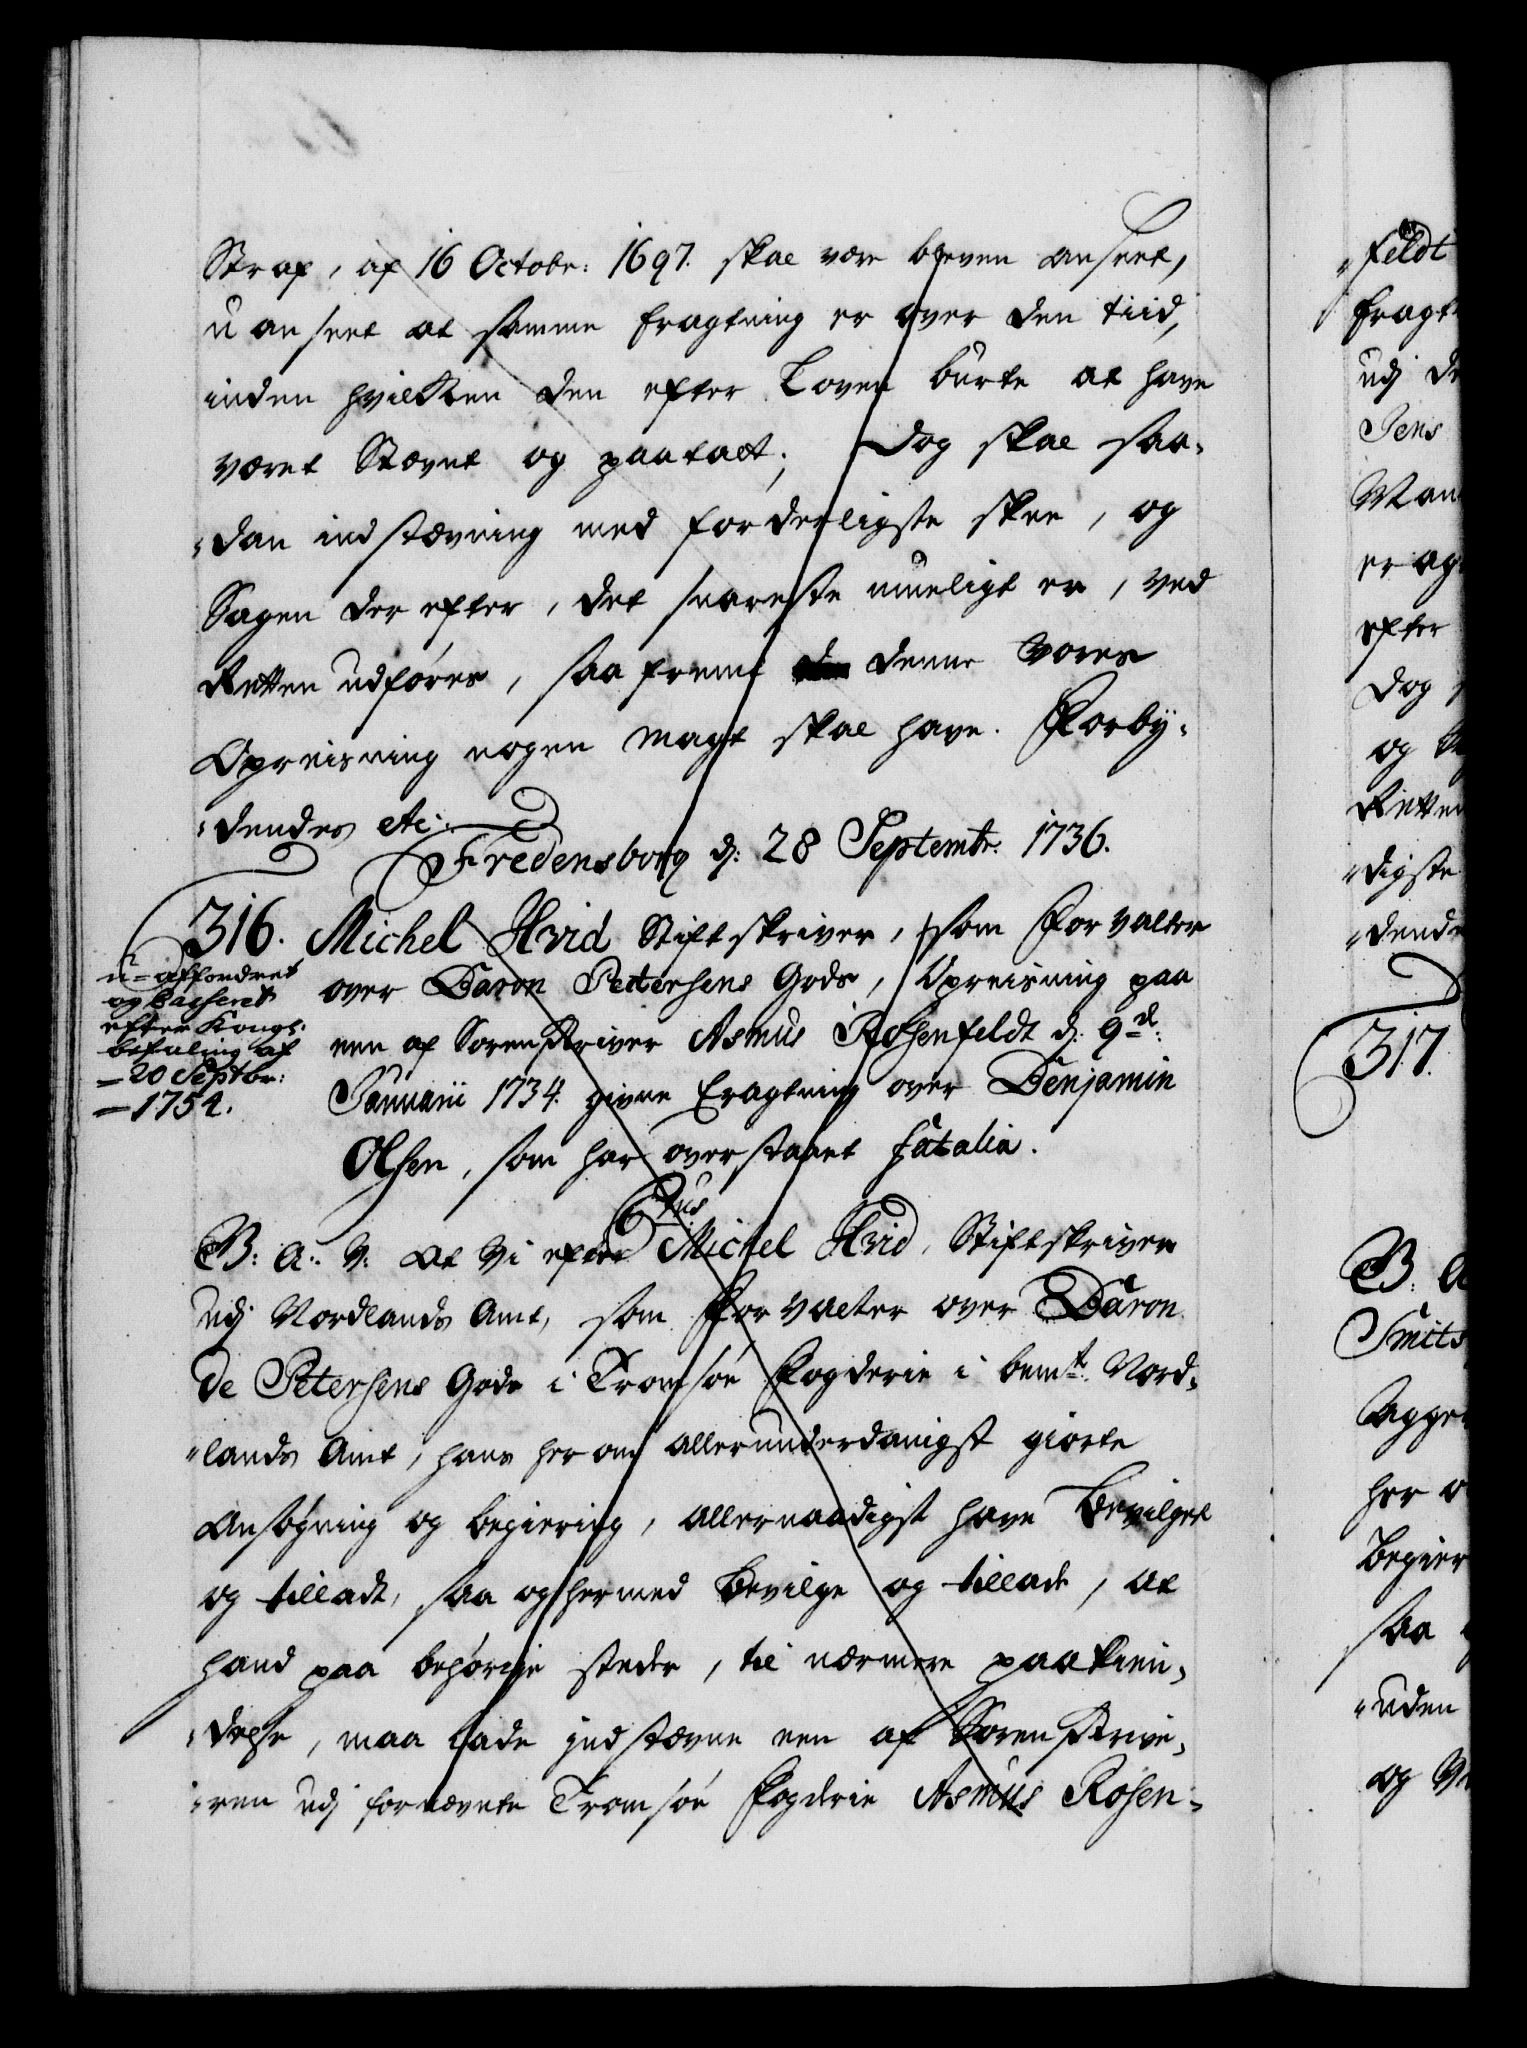 Straf, af 16 Octobr: 1697. skal være bleven anseet,
u anseet at samme Eragtning er over den tiid,
inden hvilken den efter Loven burte at have
været Stævnt og paatalt; Dog skal saa-
dan indstævning med forderligste skee, og
Sagen der efter, det snareste mueligt er, ved
Retten udføres, saa fremt denne Vores
Opreisning nogen magt skal have. Forby-
dendes etc:
Fredensborg d: 28 Septembr: 1736.
316. Michel Hvid Stiftskriver, som Forvalter
over Baron Petersens Gods, Opreisning paa
een af Sorenskriver Asmus Rosenfeldt d: 9de:
Januarii 1734. givne Eragtning over Benjamin
Olsen, som har overstaaet fatalia.
u-affordret
og Casseret
efter Kongl:
befaling af
20 Septbr:
1754.
C 6tus
G: A: V: At Vi efter Michel Hvid, Stiftskriver
udj Nordlands Amt, som Forvalter over Baron
de Petersens Gods i Tromsøe Fogderie i bemte: Nord-
lands Amt, hans herom allerunderdanigst giorte
Ansøgning og begiering, allernaadigst have bevilget
og tilladt, saa og hermed bevilge og tillade, at
hand paa behørige steder, til nærmere paakien-
delse, maa lade indstævne een af Sorenskrive-
ren udj fornævnte Tromsøe Fogderie Asmus Rosen-
feldt
udj
Jens
efter
Dog
Retten
digste
317.
B: A
Smits
her
begier
saa
uden